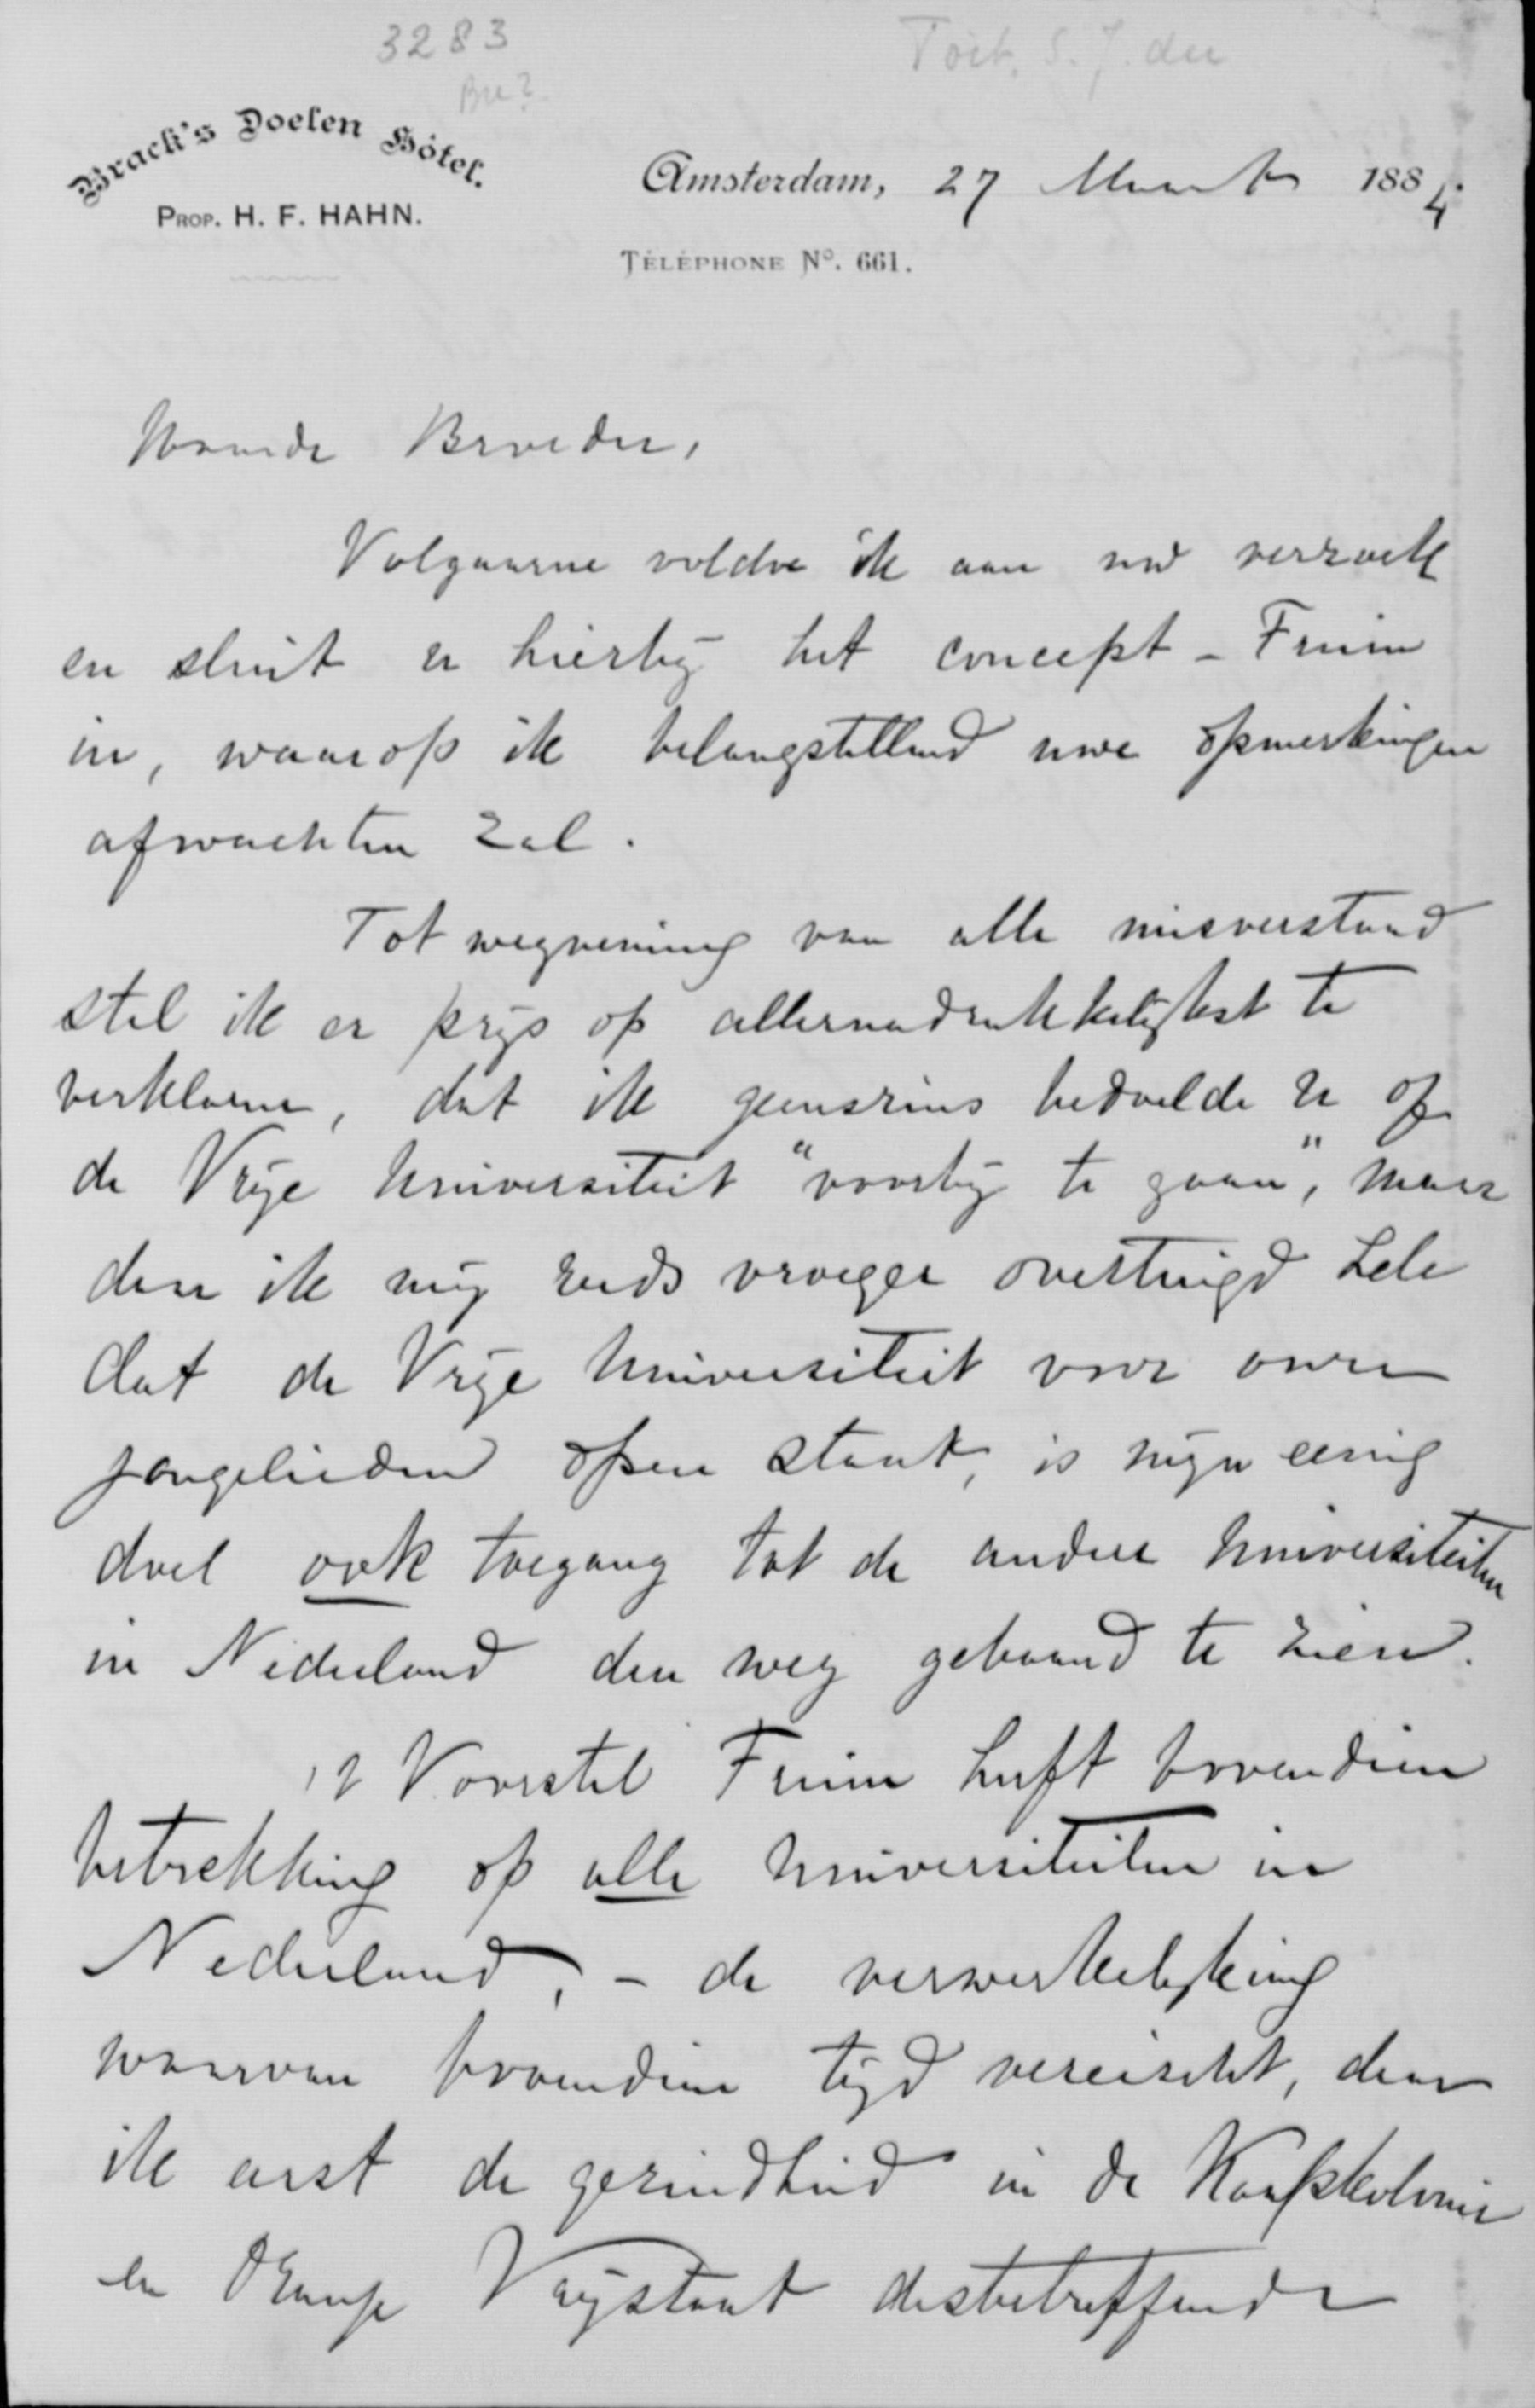 3283
Toit, S. J. du
Bu?
Brack's Doelen Hôtel.
PROP. H. F. HAHN.
Amsterdam, 27 Maart 1884.
TÉLÉPHONE No. 661.
Waarde Broeder,
Volgaarne voldoe ik aan uw verzoek
en sluit u hierbij het concept - Fruin
in, waarop ik belangstellend uwe opmerkingen
afwachten zal.
Tot wegneming van alle misverstand
stel ik er prijs op allernadrukkelijkst te
verklaren, dat ik geenszins bedoelde U of
de Vrije Universiteit "voorbij te gaan", maar
daar ik mij reeds vroeger overtuigd heb
dat de Vrije Universiteit voor onze
jongelieden open staat, is mijn eenig
doel ook toegang tot de andere Universiteiten
in Nederland den weg gebaand te zien.
't Voorstel Fruin heeft bovendien
betrekking op alle Universiteiten in
Nederland, - de verwerkelijking
waarvan bovendien tijd vereischt, daar
ik eerst de gezindheid in de Kaapkolonie
en Oranje Vrijstaat desbetreffende